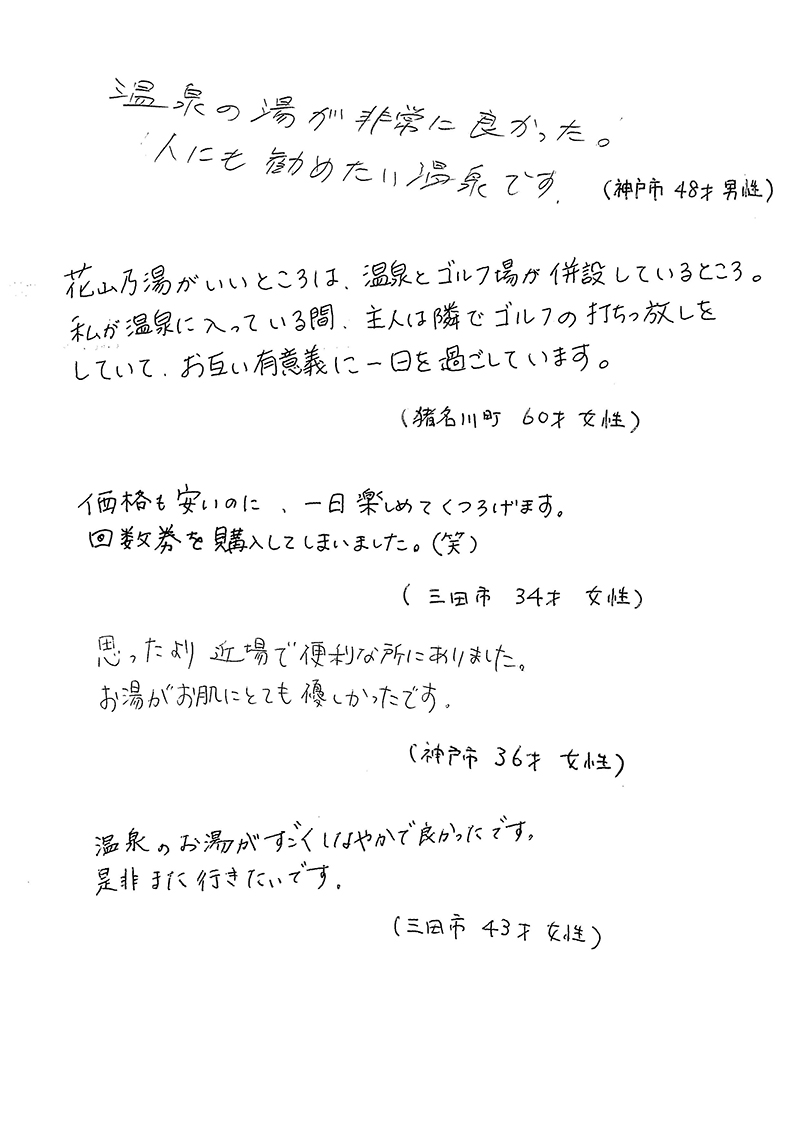 温泉の湯が非常に良かった。
人にも勧めたい温泉です.
(神戸市 48才 男性)
花山乃湯がいいところは、温泉とゴルフ場が併設しているところ。
私が温泉に入っている間、主人は隣でゴルフの打ちっ放しを
していて、お互い有意義に一日を過ごしています。
(猪名川町 60才 女性)
価格も安いのに、一日楽しめてくつろげます。
回数券を購入してしまいました。(笑)
(三田市 34才 女性)
思ったより近場で便利な所にありました。
お湯がお肌にとても優しかったです。
(神戸市 36才 女性)
温泉のお湯がすごくしなやかで良かったです。
是非また行きたいです。
(三田市 43才 女性)